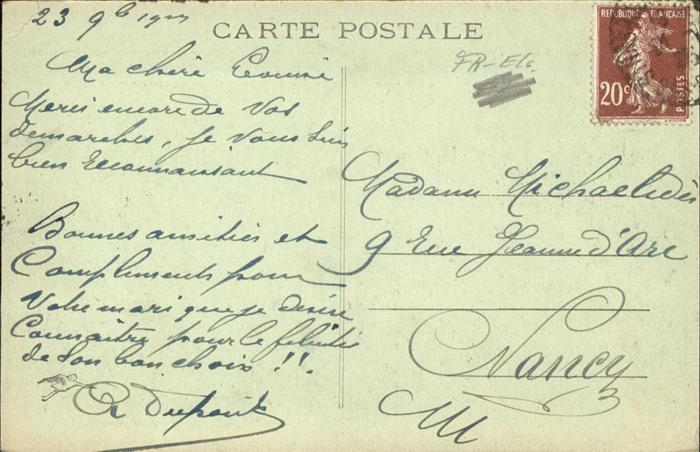 23 9b
CARTE POSTALE
FR-Els
REPUBLIQUE FRANÇAISE
20c
POSTES
Ma chère Louise
Merci encore de Vos
demarches, je vous suis
bien reconnaissant
Bonnes amitiés et
Compliments pour
Votre mari que je désire
Connaître pour le féliciter
de son bon choix !!.
R Dupont
Madame Michaelidès
9 Rue Jeanne d'Arc
Nancy